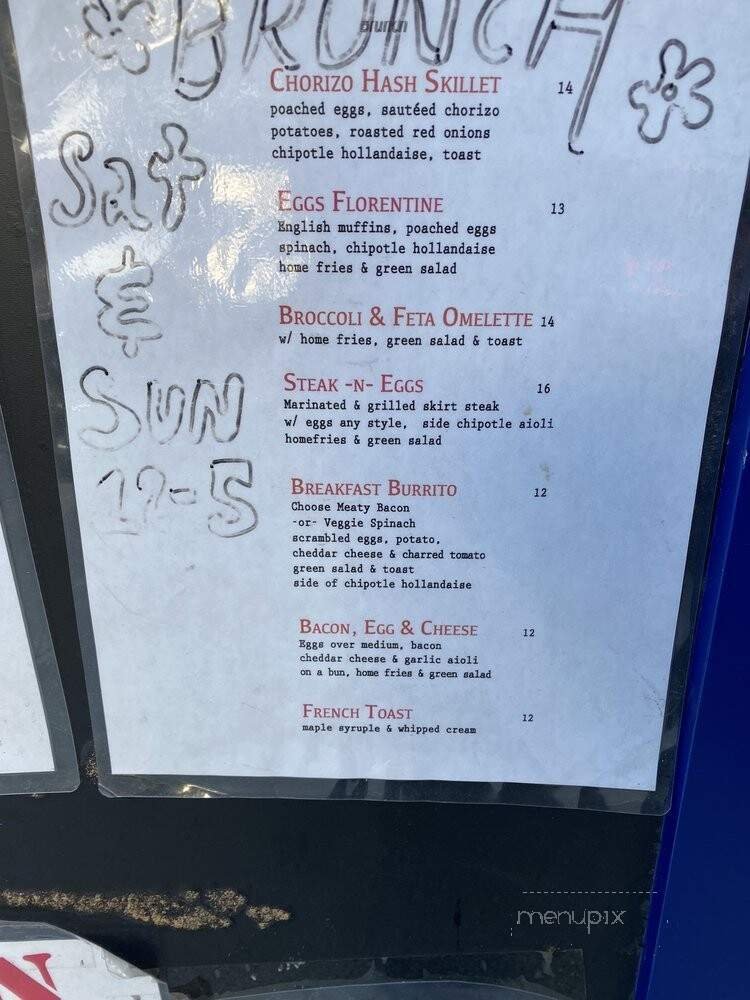 BRUNCH
Brunch
Sat
&
SUN
12-5
CHORIZO HASH SKILLET 14
poached eggs, sautéed chorizo
potatoes, roasted red onions
chipotle hollandaise, toast
EGGS FLORENTINE 13
English muffins, poached eggs
spinach, chipotle hollandaise
home fries & green salad
BROCCOLI & FETA OMELETTE 14
w/ home fries, green salad & toast
STEAK -N- EGGS 16
Marinated & grilled skirt steak
w/ eggs any style, side chipotle aioli
homefries & green salad
BREAKFAST BURRITO 12
Choose Meaty Bacon
-or- Veggie Spinach
scrambled eggs, potato,
cheddar cheese & charred tomato
green salad & toast
side of chipotle hollandaise
BACON, EGG & CHEESE 12
Eggs over medium, bacon
cheddar cheese & garlic aioli
on a bun, home fries & green salad
FRENCH TOAST 12
maple syruple & whipped cream
menupix
N